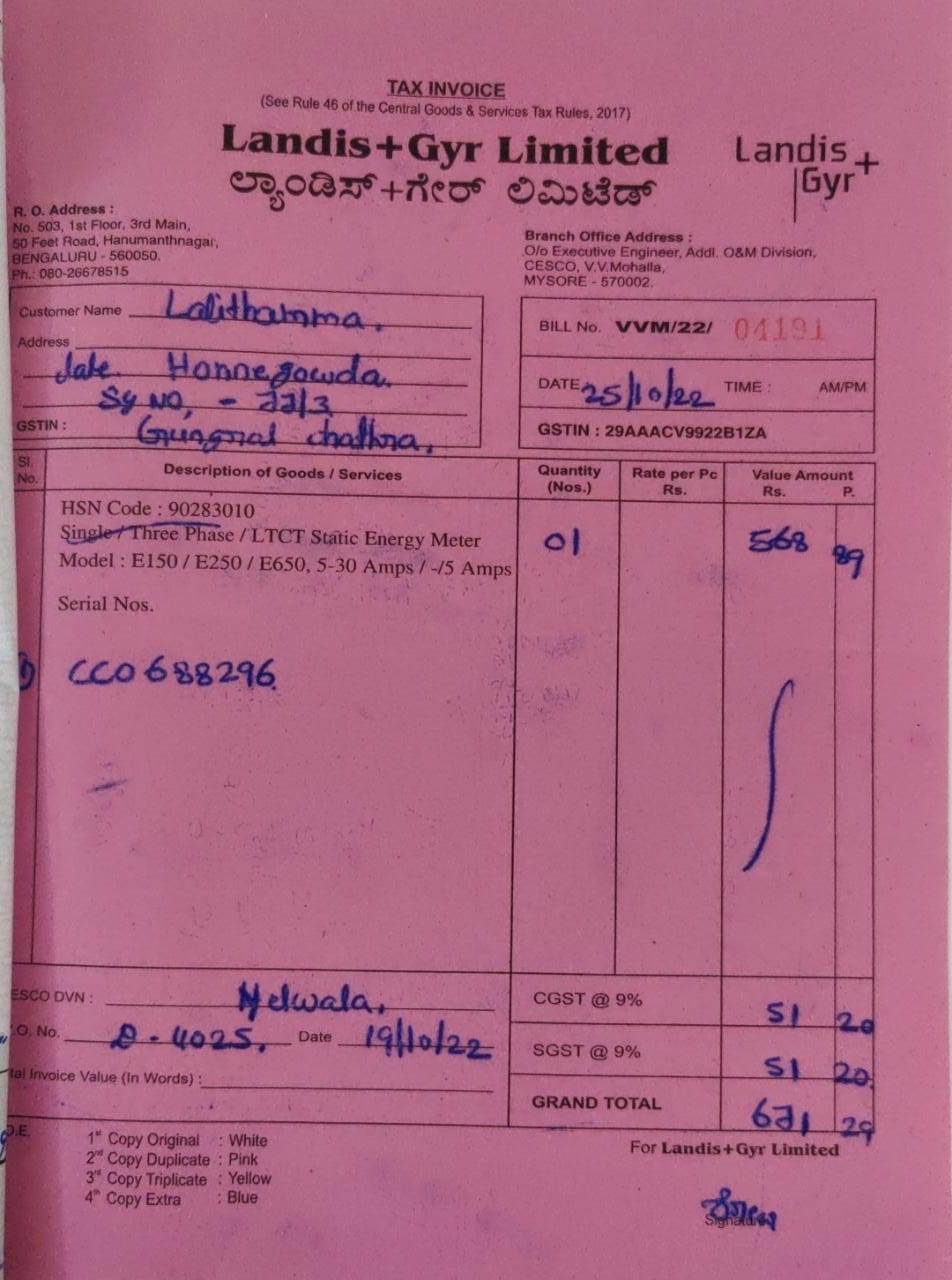 TAX INVOICE
(See Rule 46 of the Central Goods & Services Tax Rules, 2017)
Landis+Gyr Limited
ಲ್ಯಾಂಡಿಸ್+ಗೇರ್ ಲಿಮಿಟೆಡ್
Landis
Gyr+
R. O. Address :
No. 503, 1st Floor, 3rd Main,
50 Feet Road, Hanumanthnagar,
BENGALURU - 560050.
Ph.: 080-26678515
Branch Office Address :
O/o Executive Engineer, Addl. O&M Division,
CESCO, V.V.Mohalla,
MYSORE - 570002.
Customer Name Lalithamma.
Address
late Honnegowda.
Sy NO, - 77/3
GSTIN :
BILL No. VVM/22/ 04191
DATE 25/10/22 TIME : AM/PM
GSTIN : 29AAACV9922B1ZA
Sl. No. Description of Goods / Services Quantity (Nos.) Rate per Pc Rs. Value Amount Rs. P.
HSN Code : 90283010
Single / Three Phase / LTCT Static Energy Meter 01 568 89
Model : E150 / E250 / E650, 5-30 Amps / -/5 Amps
Serial Nos.
1) CC0688296
ESCO DVN : Yelwala.
.O. No. D-4025. Date 19/10/22
tal Invoice Value (In Words) :
CGST @ 9% 51 20
SGST @ 9% 51 20
GRAND TOTAL 671 29
O.E.
1st Copy Original : White
2nd Copy Duplicate : Pink
3rd Copy Triplicate : Yellow
4th Copy Extra : Blue
For Landis+Gyr Limited
Signature